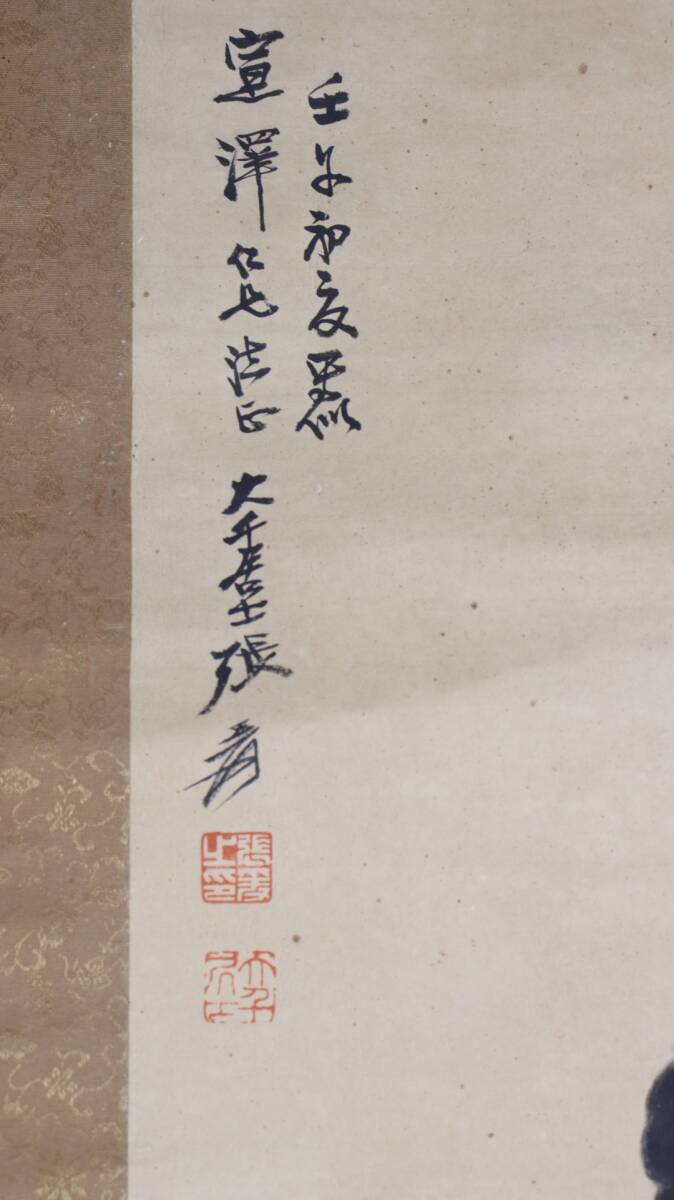 壬午初夏寫似
宣澤仁兄法正 大千居士張爰
張爰之印
大千